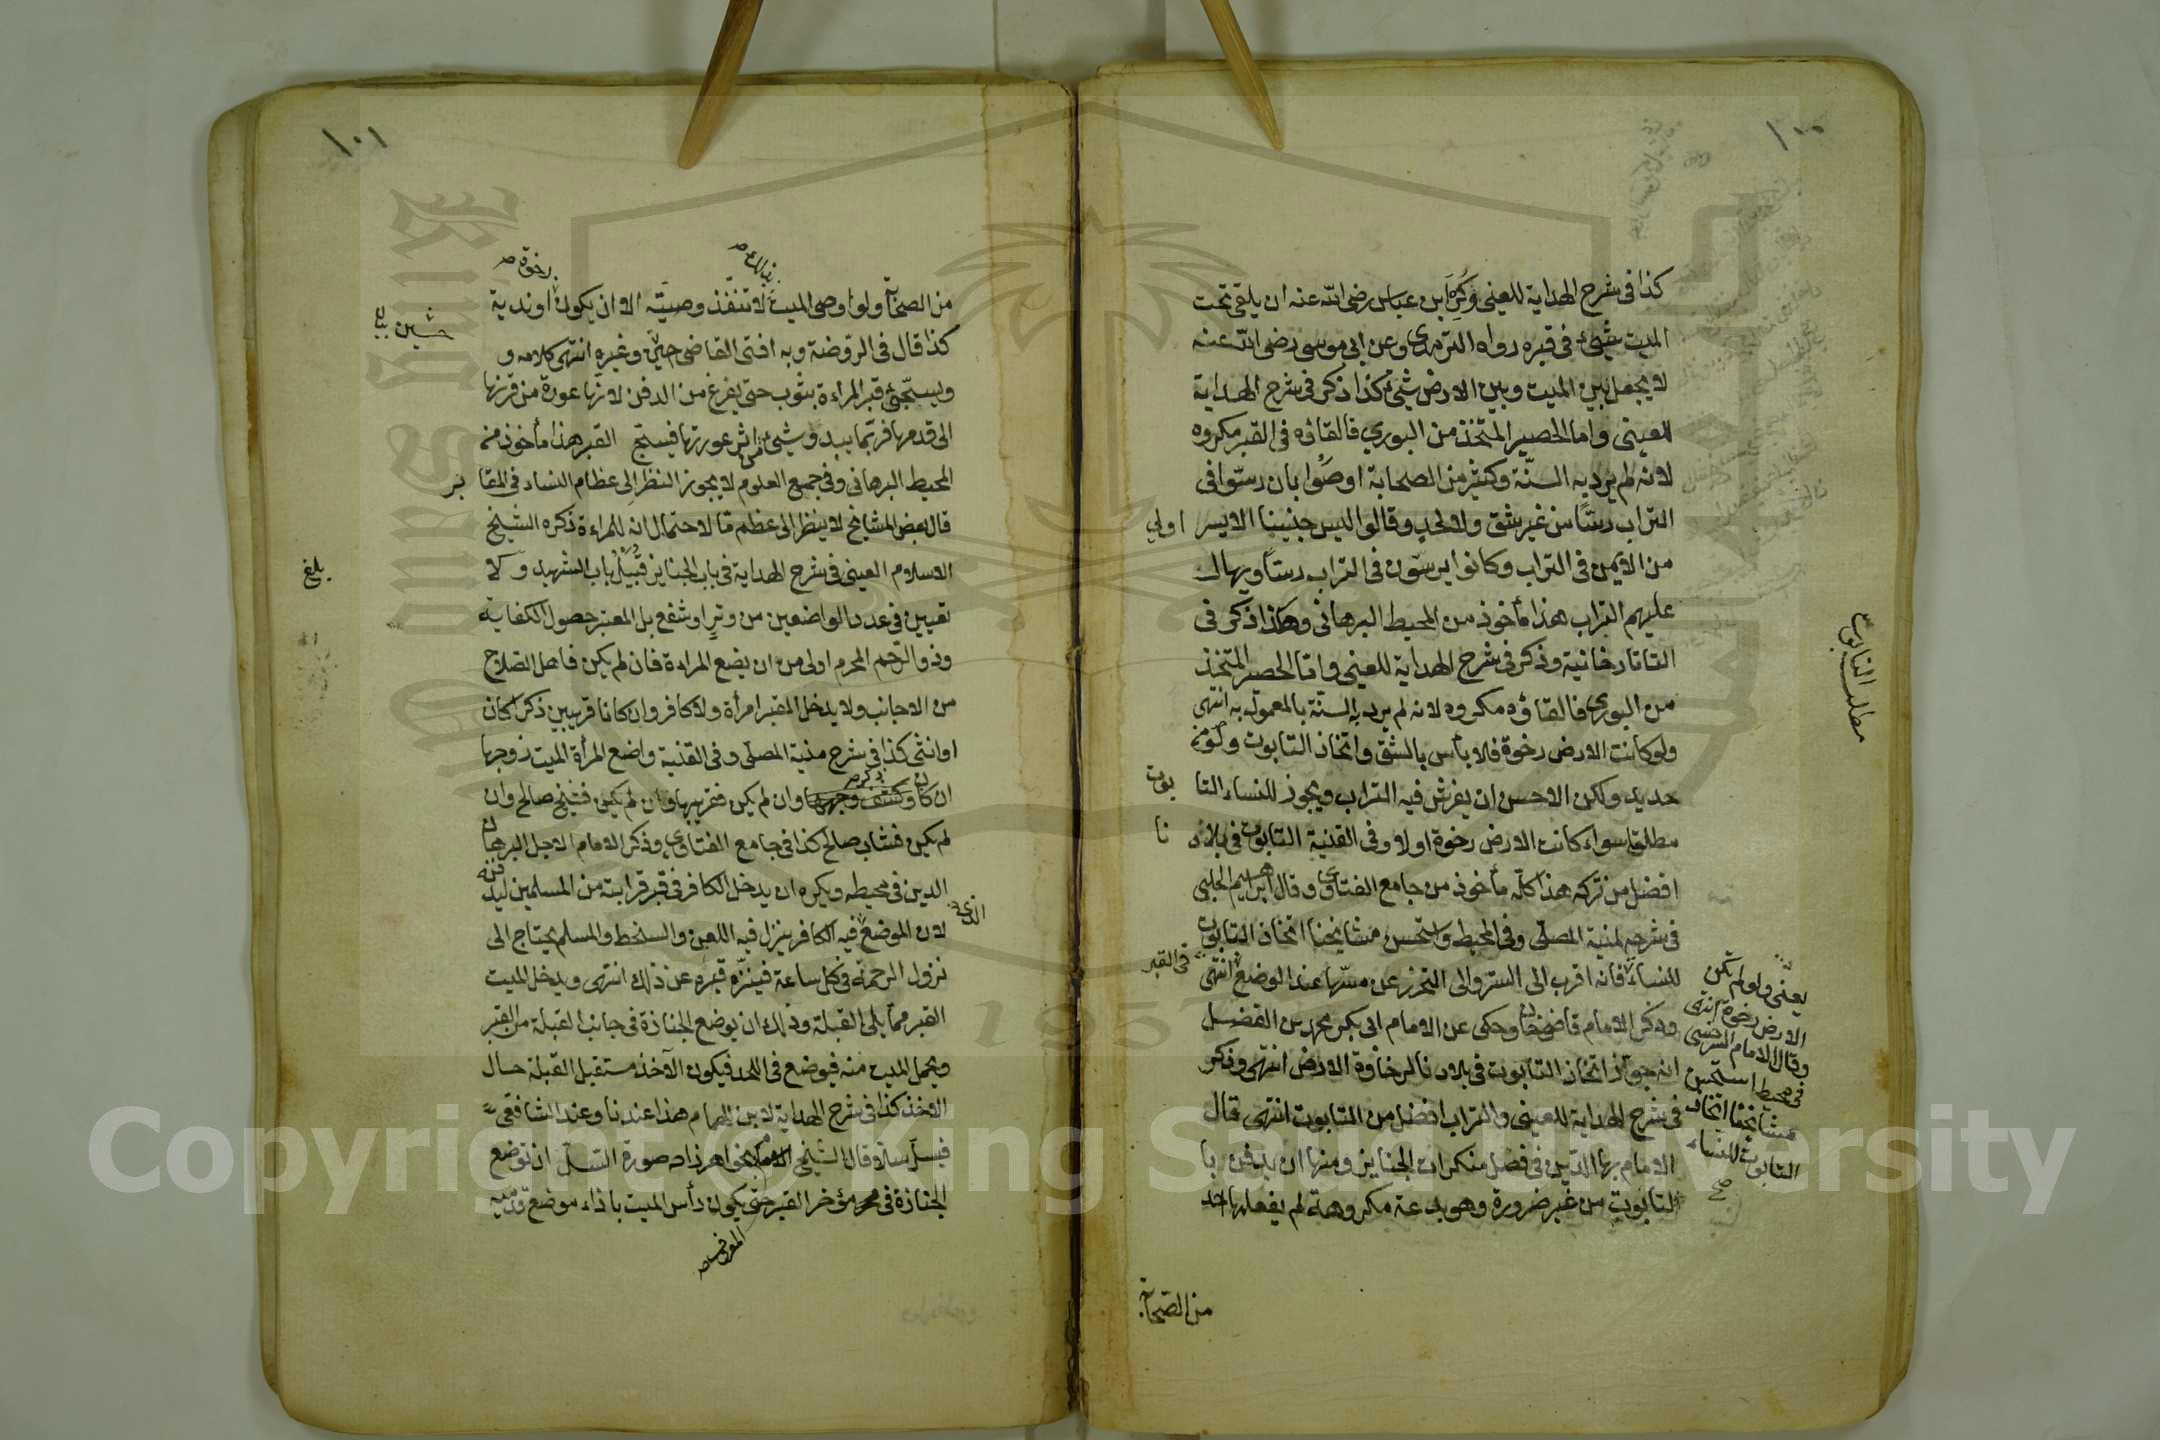 ١٠٠
كذا فى شرح الهداية للعينى وكره ابن عباس رضى الله عنه ان يلقى تحت
الميت شئ فى قبره رواه الترمذى وعن ابى موسى رضى الله عنه
لا يجعل بين الميت وبين الارض شئ كذا ذكر فى شرح الهداية
للعينى واما الحصير المتخذ من البوري فالقاؤه فى القبر مكروه
لانه لم يرد به السنة وكثير من الصحابة اوصوا بان رسّوا فى
التراب رسّا من غير شق ولا لحد وقالوا ليس جنبنا الايسر اولى
من الايمن فى التراب وكانوا يرسّون فى التراب رسّا ويهال
عليهم التراب هذا مأخوذ من المحيط البرهانى وهكذا ذكر فى
التاتارخانية وذكر فى شرح الهداية للعينى واما الحصير المتخذ
من البوري فالقاؤه مكروه لانه لم يرد به السنة بالمعمول به انتهى
ولو كانت الارض رخوة فلا بأس بالشق واتخاذ التابوت ولو من
حديد ولكن الاحسن ان يفرش فيه التراب ويجوز للنساء التابوت
مطلقا سواء كانت الارض رخوة او لا وفى القنية التابوت فى بلادنا
افضل من تركه هذا كلّه مأخوذ من جامع الفتاوى وقال ابراهيم الحلبي
فى شرحه لمنية المصلّى وفى المحيط واستحسن مشايخنا اتخاذ التابوت
للنساء فانه اقرب الى الستر والى التحرز عن مسّها عند الوضع فى القبر انتهى
وذكر الامام قاضيخان وحكى عن الامام ابى بكر محمد بن الفضل
انه جوّز اتخاذ التابوت فى بلادنا لرخاوة الارض انتهى وذكر
فى شرح الهداية للعينى والتراب افضل من التابوت انتهى قال
الامام بهاء الدين فى فصل منكرات الجنايز ومنها ان يدفن با
لتابوت من غير ضرورة وهو بدعة مكروهة لم يفعلها احد
من الصحابة
مطلب التابوت
يعنى ولو لم يكن
الارض رخوة انتهى
وقال الامام السرخسى
فى محيط استحسن
مشايخنا اتخاذ
التابوت للنساء
صح
١٠١
رخوة صح
من الصحابة ولو اوصى الميت لا تنفذ وصيته الا ان يكون او ندية
كذا قال فى الروضة وبه افتى القاضى حسين وغيره انتهى كلامه و
ويسجّى قبر المراءة بثوب حتى يفرغ من الدفن لانها عورة من قرنها
الى قدمها فربما يبدو شئ من اثر عورتها فيسجى القبر هذا مأخوذ من
المحيط البرهانى وفى جميع العلوم لا يجوز النظر الى عظام النساء فى المقابر
قال بعض المشايخ لا ينظر الى عظم ما لاحتمال انه للمراءة ذكره الشيخ
الاسلام العينى فى شرح الهداية فى باب الجنايز قبيل باب الشهيد ولا
تعيين فى عدد الواضعين من وتر او شفع بل المعتبر حصول الكفاية
وذو الرحم المحرم اولى من ان يضع المراءة فان لم يكن فاهل الصلاح
من الاجانب ولا يدخل القبر امرأة ولا كافر وان كانا قريبين ذكرا كان
او انثى كذا فى شرح منية المصلّى وفى القنية واضع المرأة الميت زوجها
ان كان وان لم يكن فقريبها وان لم يكن فشيخ صالح وان
لم يكن فشاب صالح كذا فى جامع الفتاوى وذكر الامام الاجل البرهان
الدين فى محيطه ويكره ان يدخل الكافر فى قبر قرابته من المسلمين ليدفنه
لان الموضع الذى فيه الكافر ينزل فيه اللعن والسخط والمسلم يحتاج الى
نزول الرحمة فى كل ساعة فينزّه قبره عن ذلك انتهى ويدخل الميت
القبر مما يلى القبلة وذلك ان يوضع الجنازة فى جانب القبلة من القبر
ويحمل الميت منه فيوضع فى اللحد فيكون الآخذ مستقبل القبلة حال
الاخذ كذا فى شرح الهداية لابن الهمام هذا عندنا وعند الشافعى
فيسلّ سلا قال الشيخ خواهرزاده صورة السلّ ان توضع
الجنازة فى مؤخر القبر حتى يكون رأس الميت باذاء موضع قدميه
المعروف صح
حسين بيان
بلغ
Copyright © King Saud University
King Saud University
1957